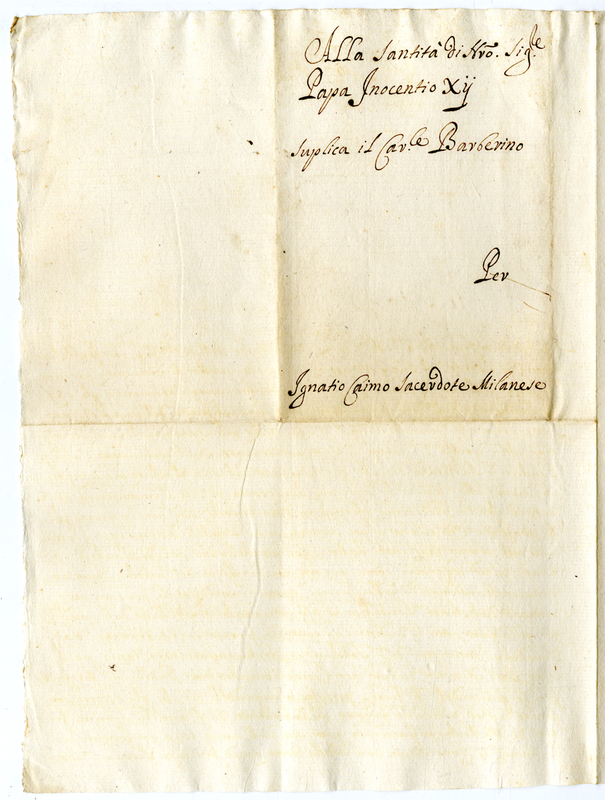 Alla Santità di Nro. Sigre
Papa Inocentio Xij
Suplica il Carle Barberino
Per
Ignatio Caimo Sacerdote Milanese